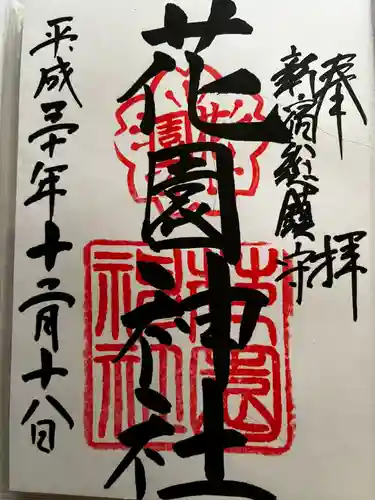 奉拝
新宿総鎮守
花園神社
平成三十年十二月十八日
花園神社